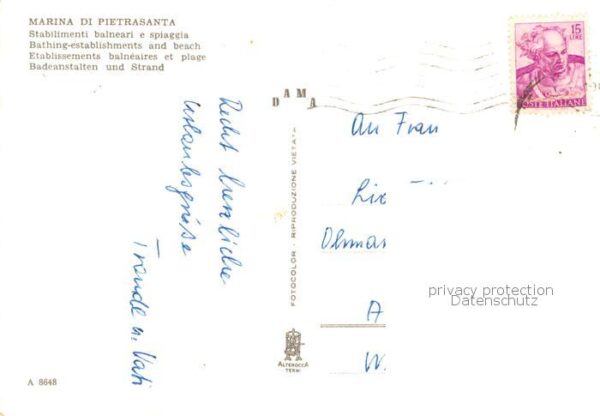 MARINA DI PIETRASANTA
Stabilimenti balneari e spiaggia
Bathing-establishments and beach
Etablissements balnéaires et plage
Badeanstalten und Strand
15
LIRE
POSTE ITALIANE
DAMA
Recht herzliche
Urlaubsgrüsse
Traudl u. Vati
FOTOCOLOR - RIPRODUZIONE VIETATA
An Frau
Olmar
A
W.
privacy protection
Datenschutz
ALTEROCCA
TERNI
A 8648